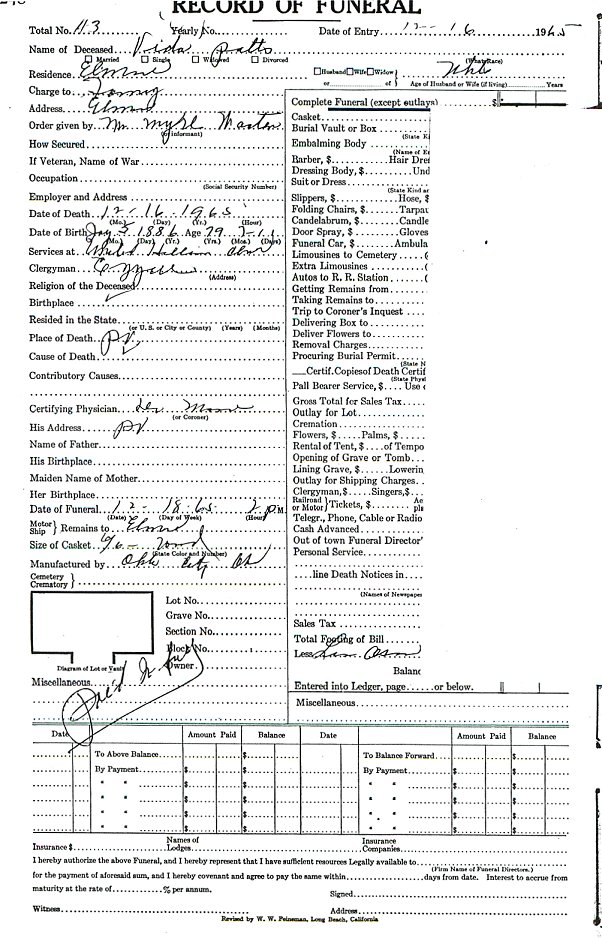 RECORD OF FUNERAL
Total No. 113 Yearly No. Date of Entry 12-16 1965
Name of Deceased Vida
Married Single Widowed Divorced
Residence Elmer Husband Wife Widow (What Race) White
or of Age of Husband or Wife (if living) Years
Charge to Family
Address Elmer
Order given by Mr.
(or informant)
How Secured
If Veteran, Name of War
Occupation
(Social Security Number)
Employer and Address
Date of Death 12-16-1965
(Mo.) (Day) (Yr.) (Hour)
Date of Birth 1886 Age 79
(Mo.) (Day) (Yr.) (Yrs.) (Mos.) (Days)
Services at
Clergyman
(Address)
Religion of the Deceased
Birthplace
Resided in the State
(or U. S. or City or County) (Years) (Months)
Place of Death
Cause of Death
Contributory Causes
Certifying Physician
(or Coroner)
His Address
Name of Father
His Birthplace
Maiden Name of Mother
Her Birthplace
Date of Funeral 12-18-65 2 PM
(Date) (Day of Week) (Hour)
Motor Ship } Remains to Elmer
Size of Casket 6/6
(State Color and Number)
Manufactured by Okla City
Cemetery
Crematory }
Lot No.
Grave No.
Section No.
Block No.
Owner
Diagram of Lot or Vault
Miscellaneous
Paid in full
Complete Funeral (except outlays) $
Casket
Burial Vault or Box
(State Ki
Embalming Body
(Name of E
Barber, $ Hair Dre
Dressing Body, $ Und
Suit or Dress
(State Kind ar
Slippers, $ Hose, $
Folding Chairs, $ Tarpau
Candelabrum, $ Candle
Door Spray, $ Gloves
Funeral Car, $ Ambula
Limousines to Cemetery (
Extra Limousines (
Autos to R. R. Station (
Getting Remains from
Taking Remains to
Trip to Coroner's Inquest
Delivering Box to
Deliver Flowers to
Removal Charges
Procuring Burial Permit
(State N
Certif. Copies of Death Certif
(State Physi
Pall Bearer Service, $ Use
Gross Total for Sales Tax
Outlay for Lot
Cremation
Flowers, $ Palms, $
Rental of Tent, $ of Tempo
Opening of Grave or Tomb
Lining Grave, $ Lowerin
Outlay for Shipping Charges
Clergyman, $ Singers, $
Railroad or Motor } Tickets, $ Ae pla
Telegr., Phone, Cable or Radio
Cash Advanced
Out of town Funeral Director'
Personal Service
line Death Notices in
(Names of Newspape
Sales Tax
Total Footing of Bill
Less
Balanc
Entered into Ledger, page or below.
Miscellaneous
Date Amount Paid Balance Date Amount Paid Balance
To Above Balance $ To Balance Forward $
By Payment $ $ By Payment $ $
" " $ $ " " $ $
" " $ $ " " $ $
" " $ $ " " $ $
" " $ $ " " $ $
Insurance $ Names of Lodges Insurance Companies
I hereby authorize the above Funeral, and I hereby represent that I have sufficient resources Legally available to
(Firm Name of Funeral Directors.)
for the payment of aforesaid sum, and I hereby covenant and agree to pay the same within days from date. Interest to accrue from
maturity at the rate of % per annum.
Signed
Witness Address
Revised by W. W. Peineman, Long Beach, California